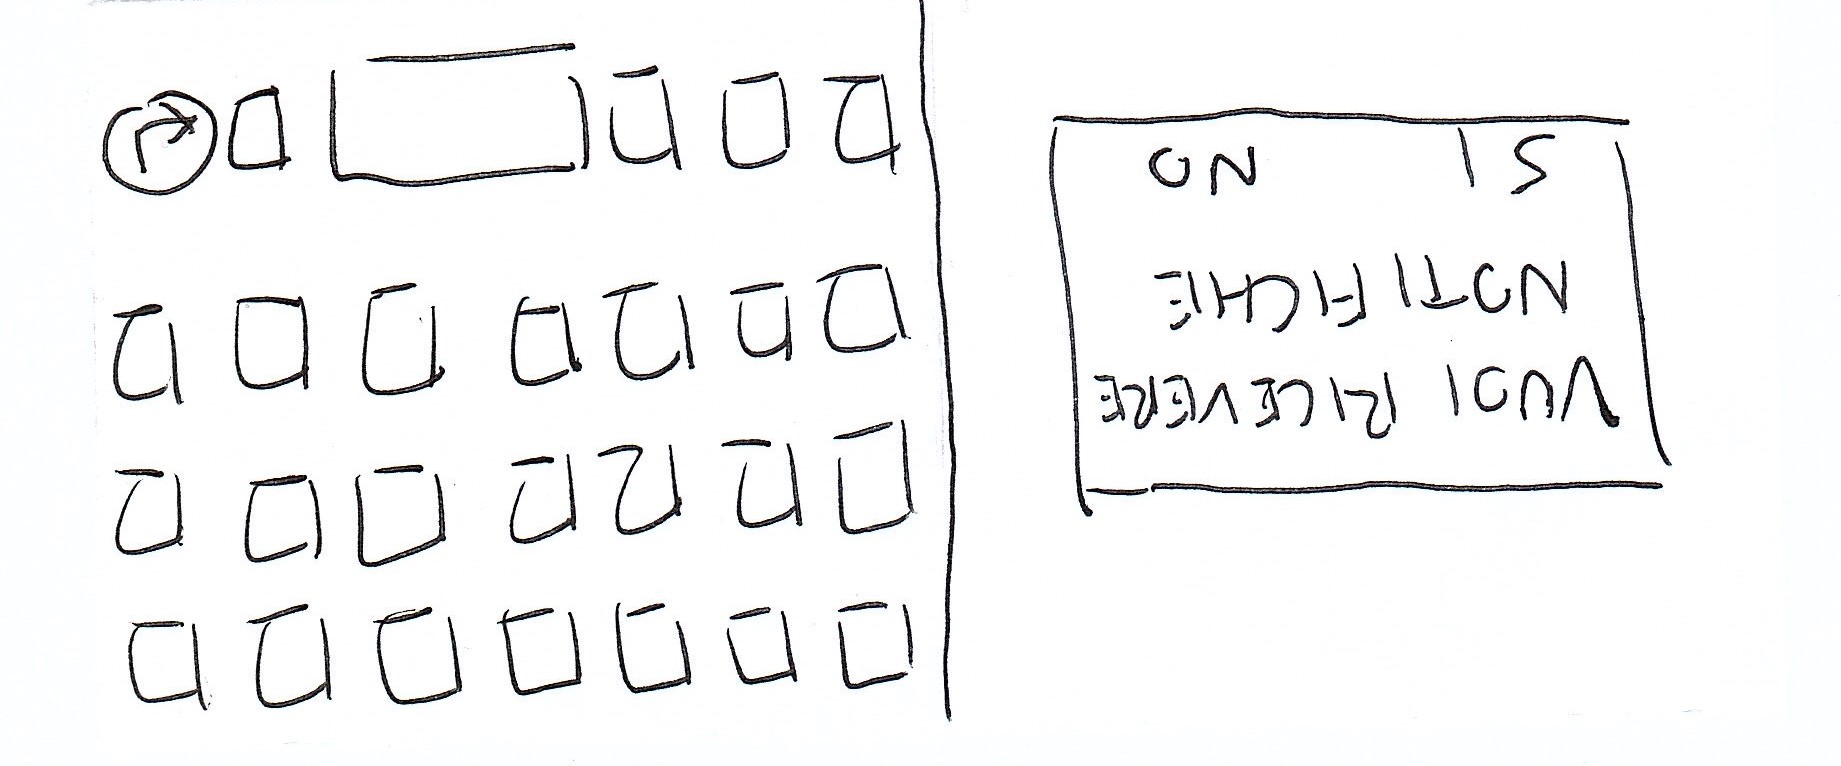 VUOI RICEVERE
NOTIFICHE
SI NO